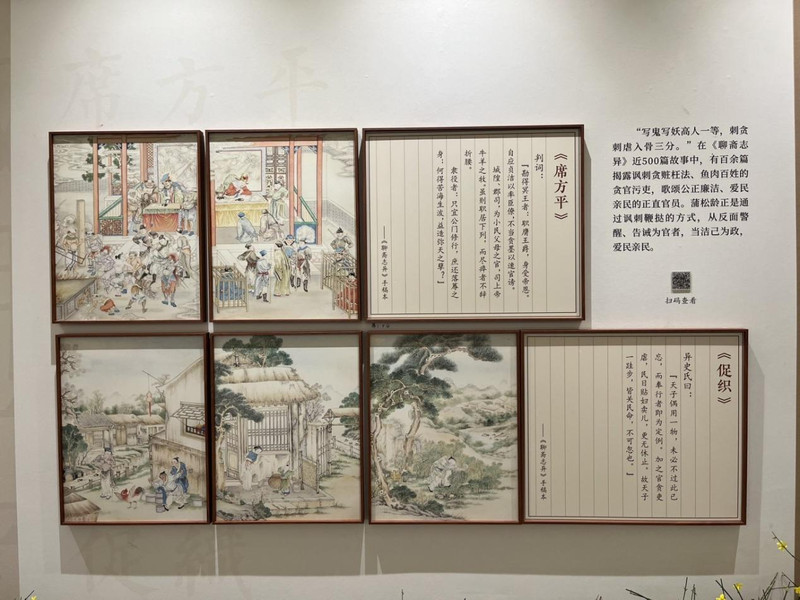 席方平
《席方平》
判词：
「勘得冥王者：职膺王爵，身受帝恩。
自应贞洁以率臣僚，不当贪墨以速官谤。
城隍、郡司，为小民父母之官，司上帝
牛羊之牧。虽则职居下列，而尽瘁者不辞
折腰。
隶役者：只宜公门修行，庶还落蓐之
身；何得苦海生波，益造弥天之孽？」
——《聊斋志异》手稿本
“写鬼写妖高人一等，刺贪
刺虐入骨三分。”在《聊斋志
异》近500篇故事中，有百余篇
揭露讽刺贪赃枉法、鱼肉百姓的
贪官污吏，歌颂公正廉洁、爱民
亲民的正直官员。蒲松龄正是通
过讽刺鞭挞的方式，从反面警
醒、告诫为官者，当洁己为政，
爱民亲民。
扫码查看
《促织》
异史氏曰：
「天子偶用一物，未必不过此已
忘；而奉行者即为定例。加之官贪吏
虐，民日贴妇卖儿，更无休止。故天子
一跬步，皆关民命，不可忽也。」
——《聊斋志异》手稿本
促織